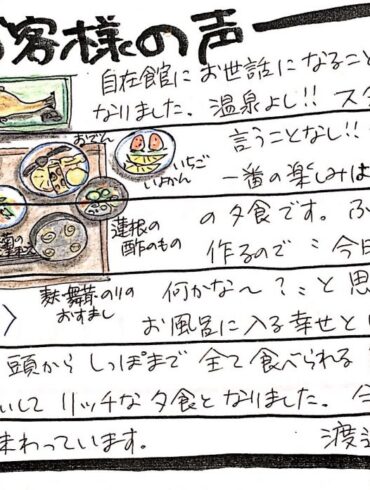 お客様の声
自在館にお世話になること
なりました。温泉よし!! スタ
言うことなし!!
一番の楽しみは
の夕食です。ふ
作るので ": 今日
何かな〜?": と思
お風呂に入る幸せと
頭からしっぽまで全て食べられる
いしてリッチな夕食となりました。今
味わっています。 渡辺
おでん
いちご
いよかん
蓮根の
酢のもの
麩・舞茸・のりの
おすまし